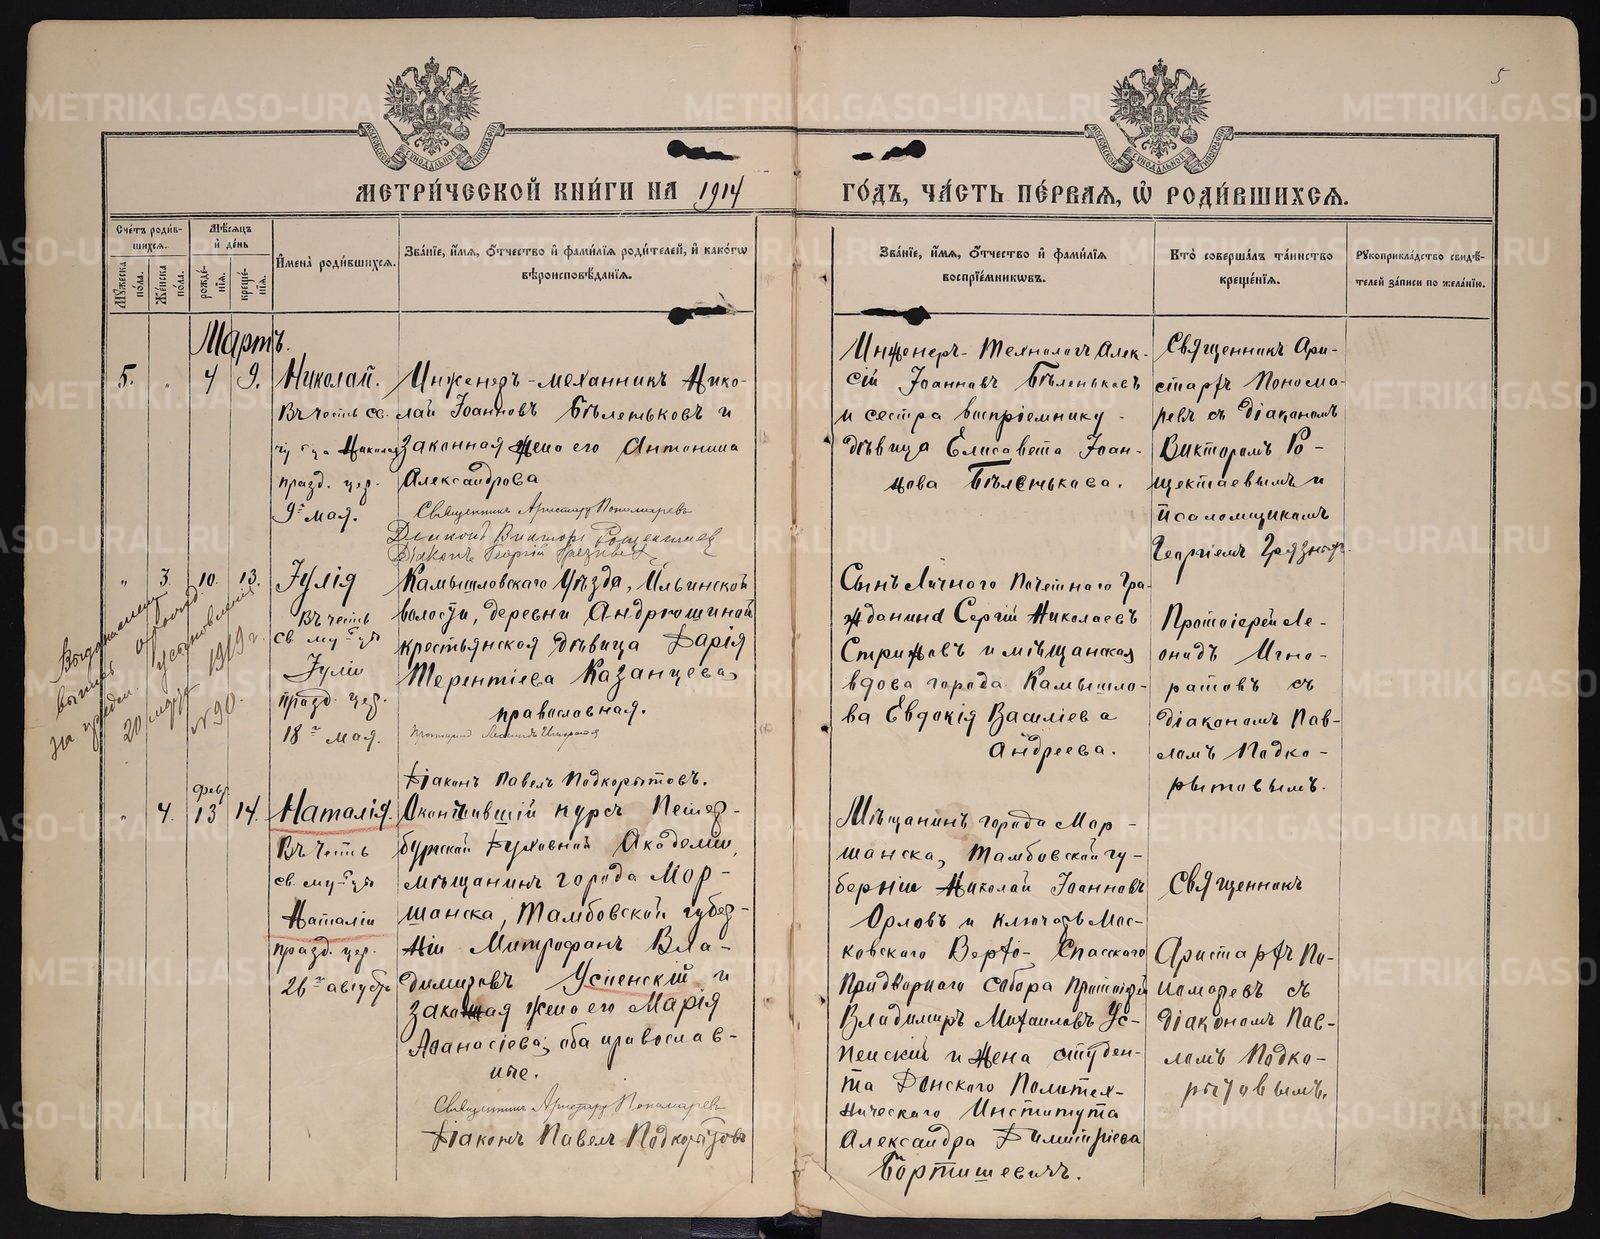 5
МОСКОВСКОЙ СѴНОДАЛЬНОЙ ТИПОГРАФІИ
МОСКОВСКОЙ СѴНОДАЛЬНОЙ ТИПОГРАФІИ
МЕТРИ́ЧЕСКОЙ КНИ́ГИ НА 1914
ГО́ДЪ, ЧА́СТЬ ПЕ́РВАЯ, Ѽ РОДИ́ВШИХСЯ.
Сче́тъ роди́в-
шихся.
Мѣ́сяцъ
и҆ де́нь
Мꙋ́жеска по́ла.
Же́нска по́ла.
рожде́-
нїя.
креще́-
нїя.
И҆мена̀ роди́вшихся.
Зва́нїе, и҆́мя, ѻ҆́тчество и҆ фами́лїя роди́телей, и҆ како́гѡ
вѣроисповѣ́данїя.
Зва́нїе, и҆́мя, ѻ҆́тчество и҆ фами́лїя
воспрїе́мникѡвъ.
Кто̀ соверша́лъ та́инство
креще́нїя.
Рꙋкоприкла́дство свидѣ́-
телей за́писи по жела́нїю.
Мартъ.
5. " 4 9.
Николай.
Въ честь св.
Николая
празд. цер.
9го мая.
Инженеръ-механникъ Нико-
лай Іоанновъ Бѣленьковъ и
законная жена его Антонина
Александрова
Священникъ Аристархъ Пономаревъ
Діаконъ Викторъ Рощектаев
Діаконъ Георгій Грязныхъ
Инженеръ-технологъ Алек-
сій Іоанновъ Бѣленьковъ
и сестра воспріемнику
дѣвица Елисавета Іоан-
нова Бѣленькова.
Священникъ Ари-
стархъ Понома-
ревъ съ діакономъ
Викторомъ Ро-
щектаевымъ и
псаломщикомъ
Георгіемъ Грязныхъ.
" 3. 10. 13.
Іулія
Въ честь
св. му-цы
Іуліи
празд. цер.
18го мая.
Камышловскаго Уѣзда, Ильинской
волости, деревни Андрюшиной
крестьянская дѣвица Дарія
Терентіева Казанцева,
православная.
Протоіерей Леонидъ Игноратовъ
Діаконъ Павелъ Подкорытовъ.
Сынъ Личнаго Почетнаго Гра-
жданина Сергій Николаевъ
Стрижовъ и мѣщанская
вдова города Камышло-
ва Евдокія Васильева
Андреева.
Протоіерей Ле-
онидъ Игно-
ратовъ съ
діакономъ Пав-
ломъ Подко-
рытовымъ.
выпись
20 марта 1919 г.
№ 90.
" 4. февр. 13 14.
Наталія.
Въ честь
св. му-цы
Наталіи
празд. цер.
26го августа
Окончившій курсъ Петер-
бургской Духовной Академіи,
мѣщанинъ города Мор-
шанска, Тамбовской губер-
ніи Митрофанъ Вла-
диміровъ Успенскій и
законная жена его Марія
Аѳанасіева; оба православ-
ные.
Священникъ Аристархъ Пономаревъ
Діаконъ Павелъ Подкорытовъ
Мѣщанинъ города Мор-
шанска, Тамбовской гу-
берніи Николай Іоанновъ
Орловъ и ключарь Мос-
ковскаго Верхо-Спасскаго
Придворнаго собора Протоіерей
Владиміръ Михаиловъ Ус-
пенскій и жена студен-
та Донского Политех-
ническаго Института
Александра Димитріева
Бортишевичъ.
Священникъ
Аристархъ По-
номаревъ съ
діакономъ Пав-
ломъ Подко-
рытовымъ.
METRIKI.GASO-URAL.RU